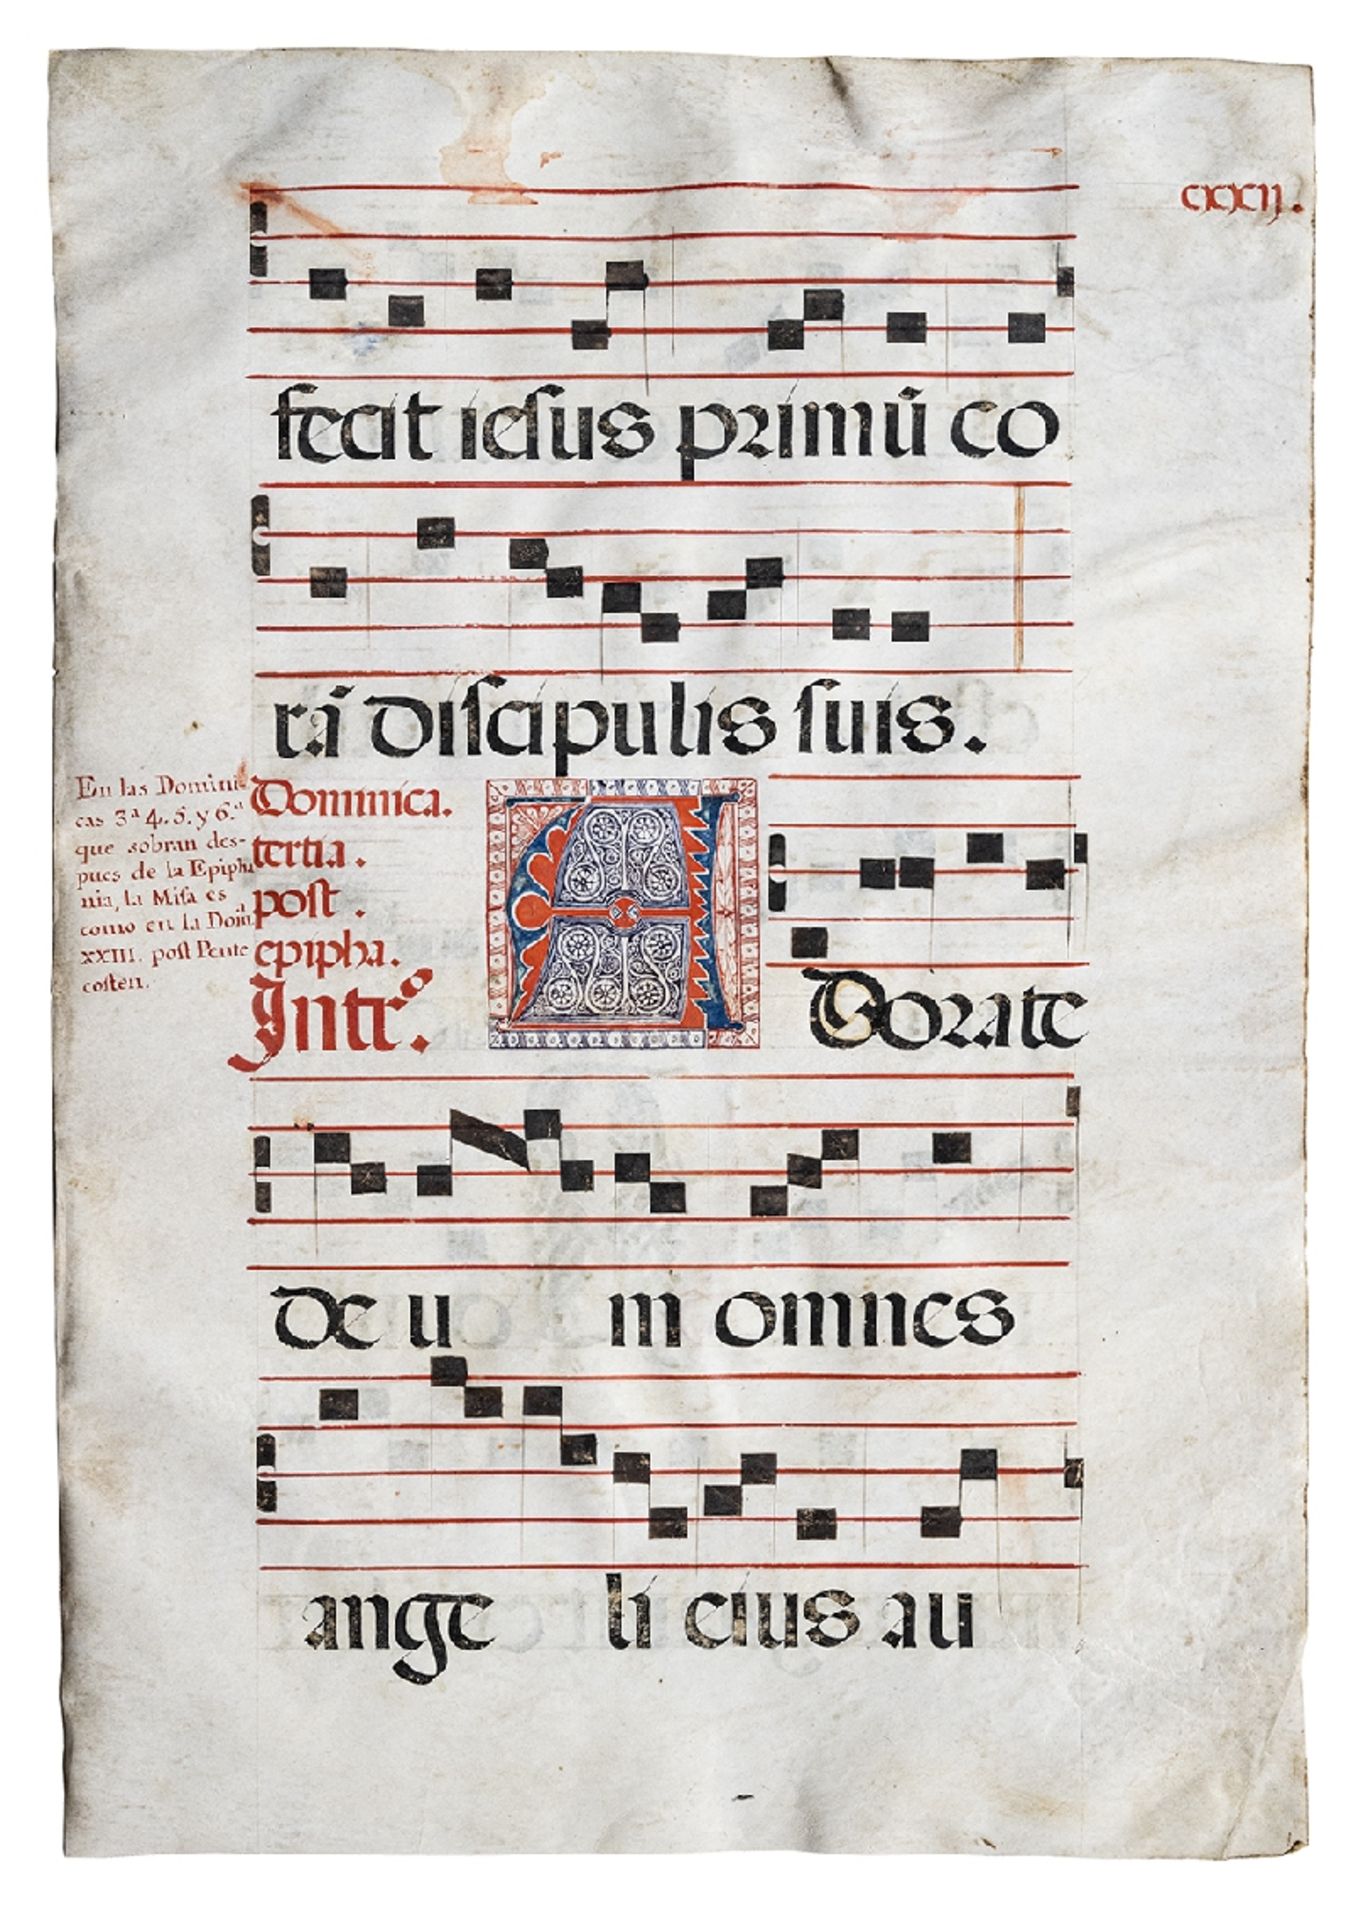 cxxij.
fecit iesus primū co
rā discipulis suis.
En las Domini
cas 3ª 4. 5. y 6.ª
que sobran des-
pues de la Epipha
nia, la Misa es
como en la Dom
XXIII. post Pente
costen.
Dominica.
tertia.
post.
epipha.
Intrº.
A Dorate
de u m omnes
ange li eius au